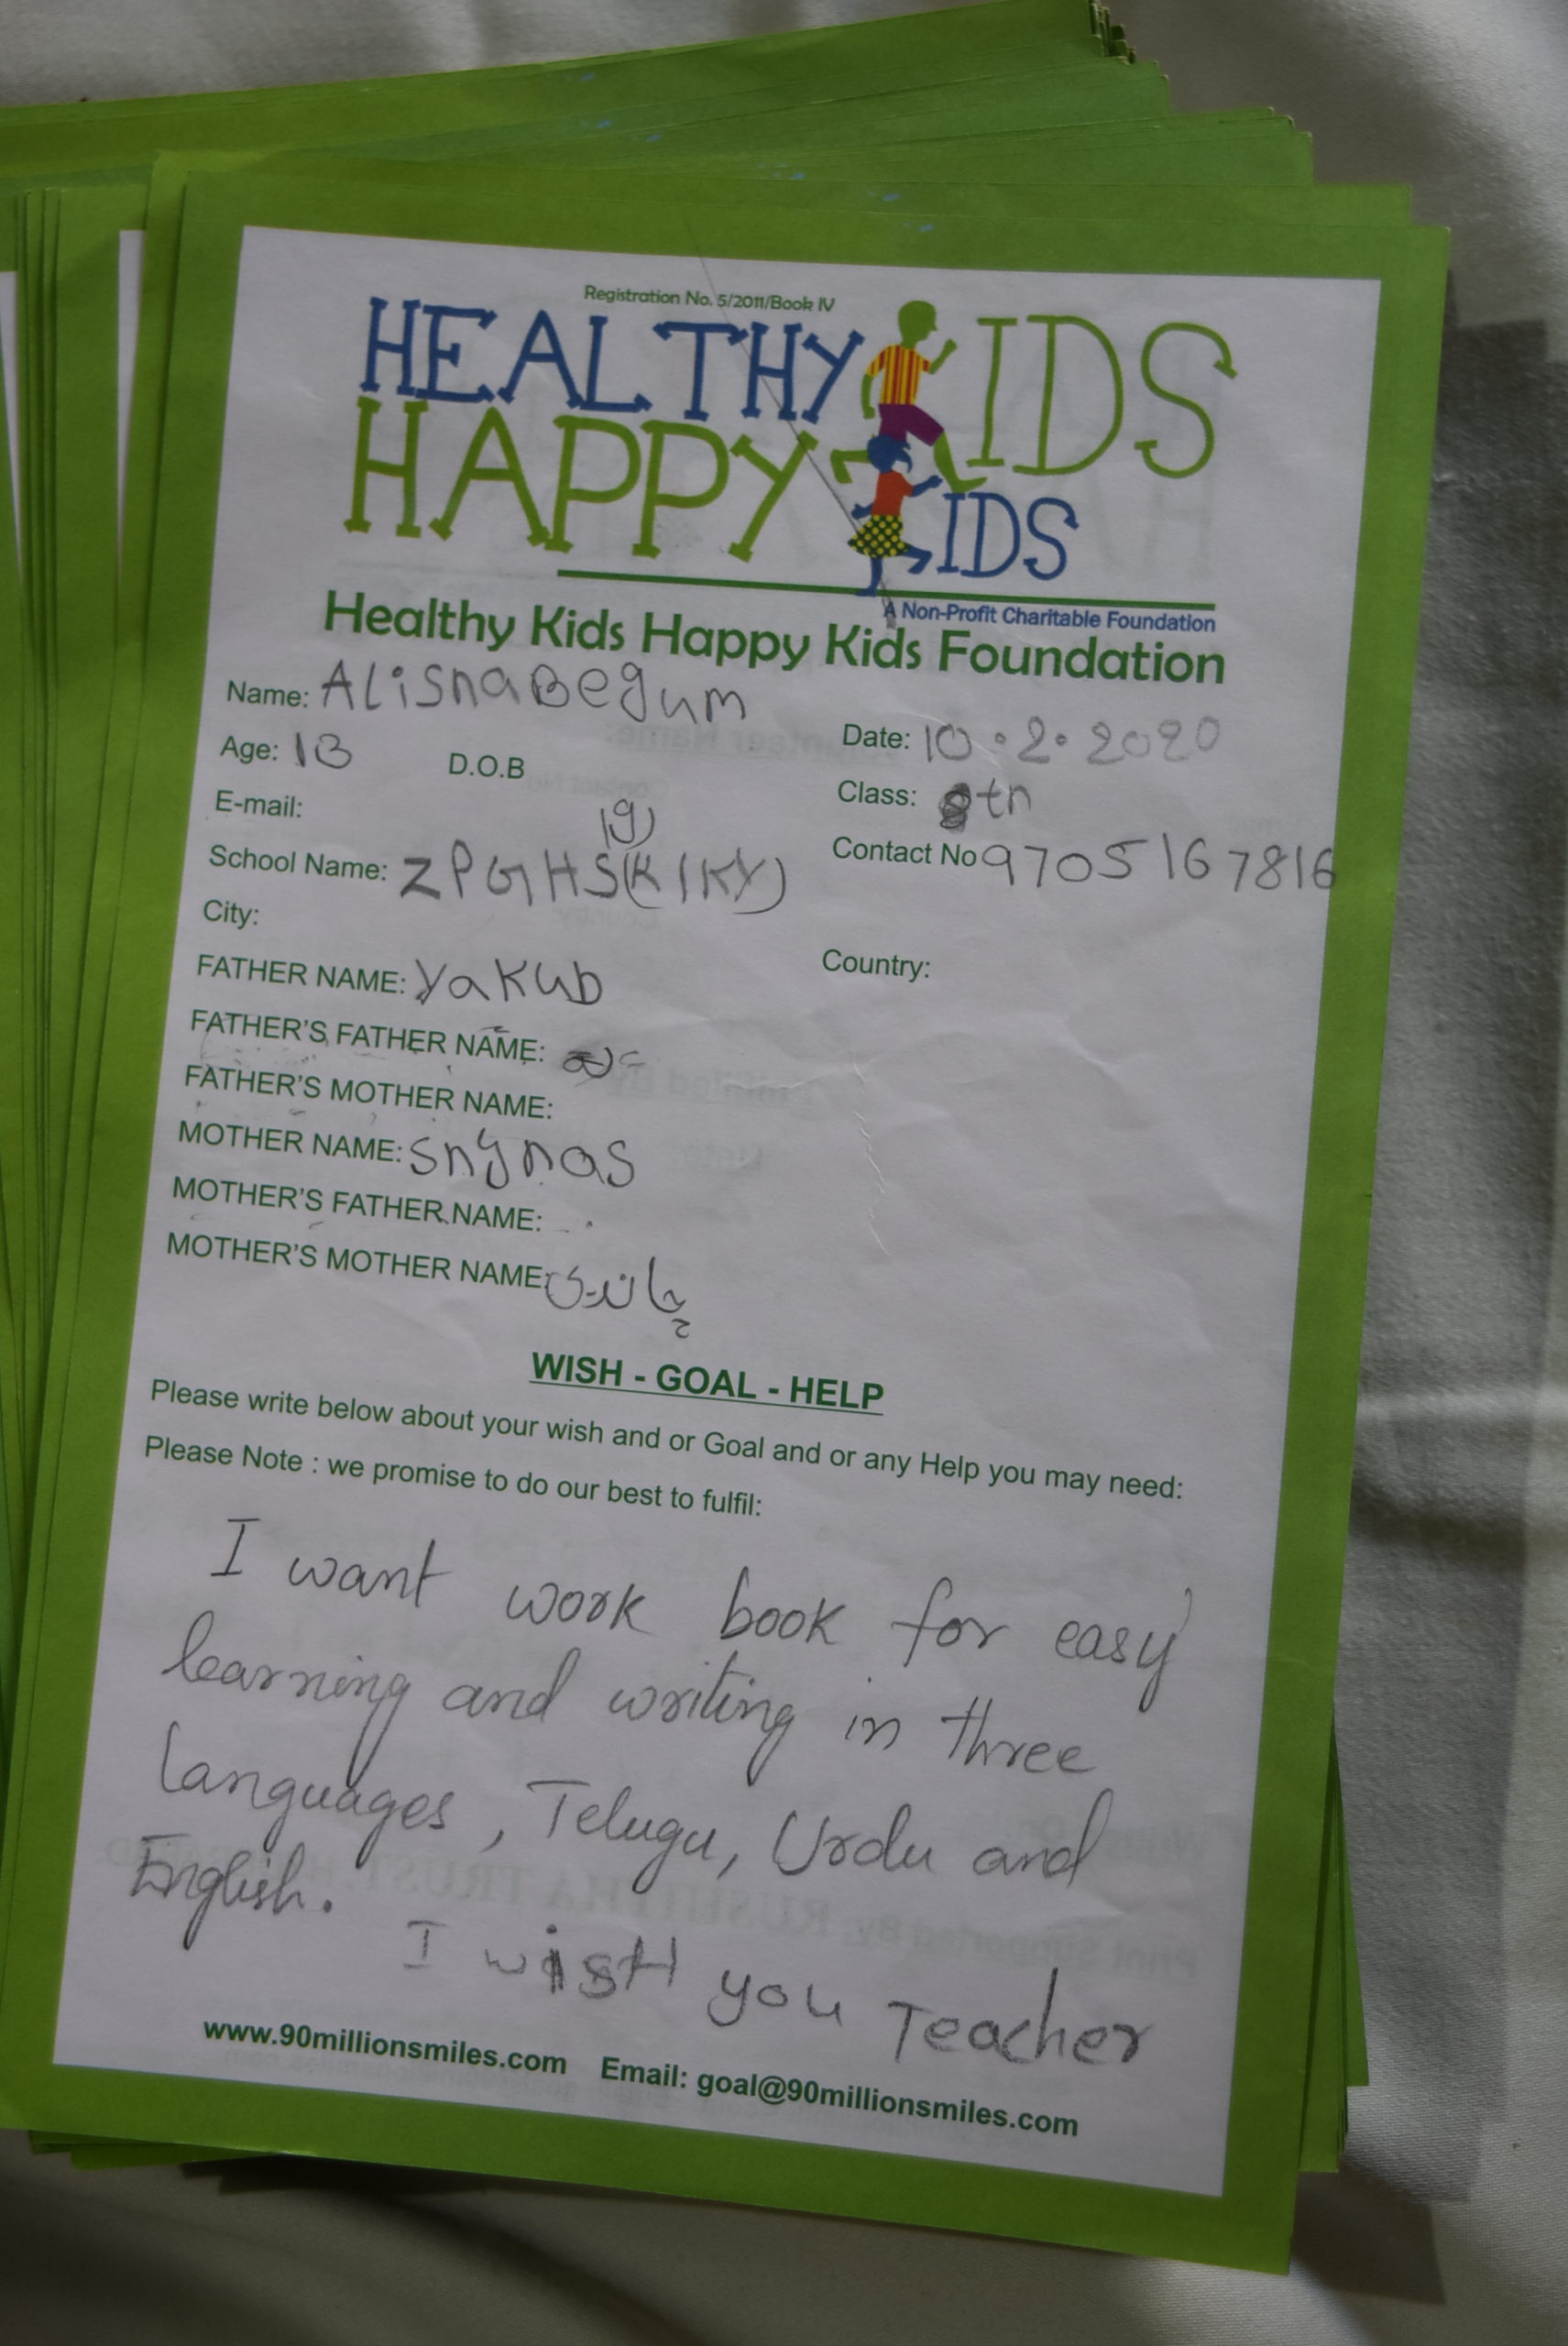 Registration No. 5/2011/Book IV
HEALTHY KIDS
HAPPY KIDS
A Non-Profit Charitable Foundation
Healthy Kids Happy Kids Foundation
Name: ALisnaBegum
Date: 10.2.2020
Age: 13 D.O.B
Class: 8th
E-mail:
Contact No 9705167816
School Name: ZPGHS(K/KY)
City:
Country:
FATHER NAME: yakub
FATHER'S FATHER NAME:
FATHER'S MOTHER NAME:
MOTHER NAME: snynas
MOTHER'S FATHER NAME:
MOTHER'S MOTHER NAME: چاندی
WISH - GOAL - HELP
Please write below about your wish and or Goal and or any Help you may need:
Please Note : we promise to do our best to fulfil:
I want work book for easy
learning and writing in three
languages, Telugu, Urdu and
English.
I wisH you Teacher
www.90millionsmiles.com Email: goal@90millionsmiles.com